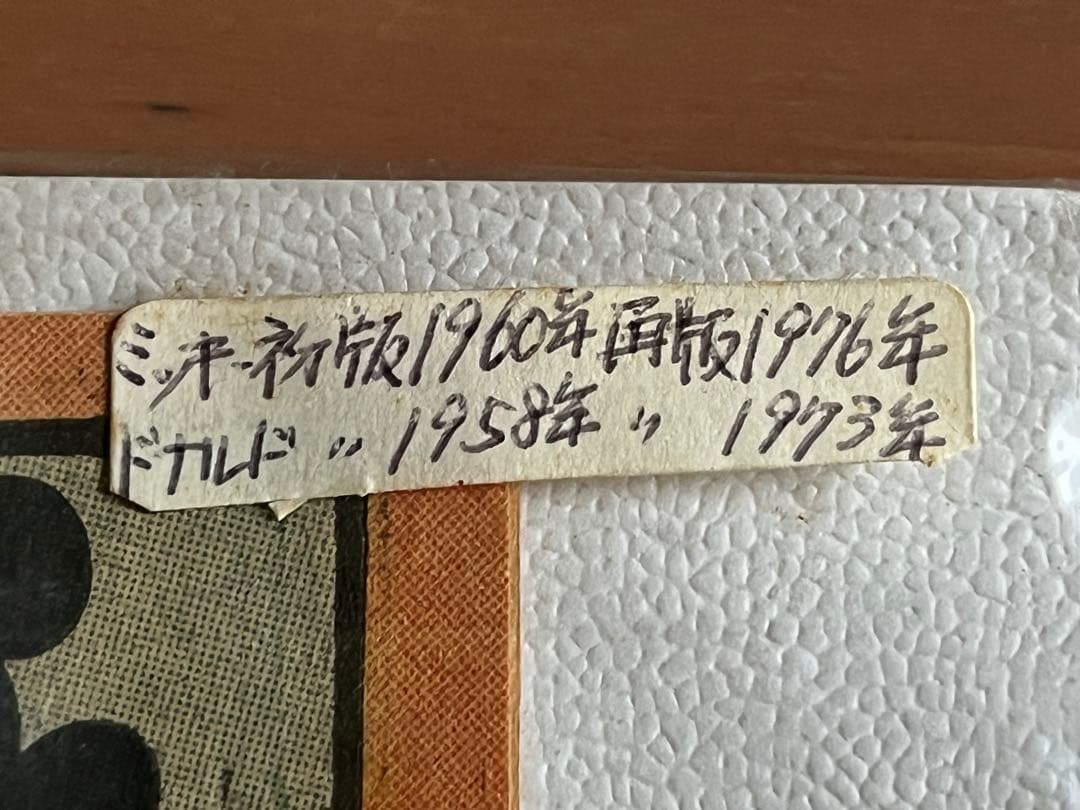 ミッキー初版1960年再版1976年
ドナルド 〃 1958年 〃 1973年